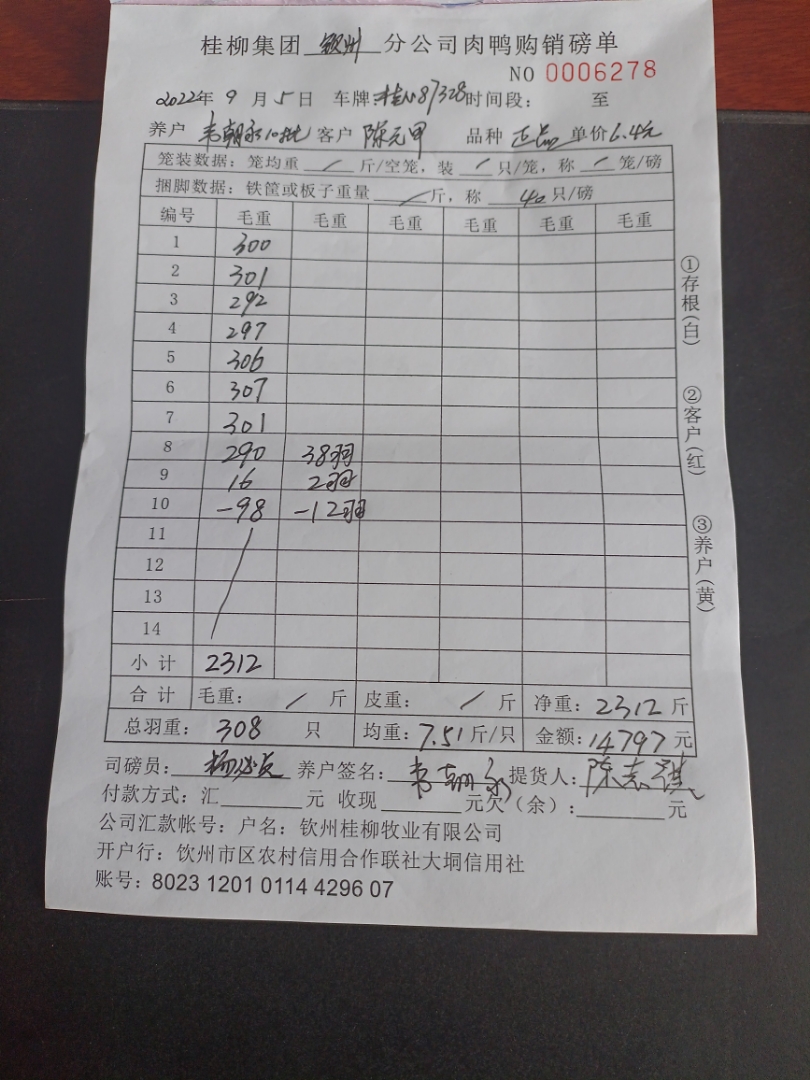 桂柳集团 钦州 分公司肉鸭购销磅单
NO 0006278
2022年 9 月 5日 车牌:桂N87328时间段: 至
养户 韦朝永10批 客户 陈元甲 品种 正品 单价6.4元
笼装数据:笼均重 / 斤/空笼,装 / 只/笼,称 / 笼/磅
捆脚数据:铁筐或板子重量 / 斤,称 40 只/磅
编号 毛重 毛重 毛重 毛重 毛重 毛重
1 300
2 301
3 292
4 297
5 306
6 307
7 301
8 290 38羽
9 16 2羽
10 -98 -12羽
11
12
13
14
小计 2312
合计 毛重: / 斤 皮重: / 斤 净重:2312斤
总羽重: 308 只 均重:7.51斤/只 金额:14797元
司磅员: 养户签名:韦朝永 提货人:陈志祺
付款方式:汇 元 收现 元欠(余): 元
公司汇款帐号:户名:钦州桂柳牧业有限公司
开户行:钦州市区农村信用合作联社大垌信用社
账号:8023 1201 0114 4296 07
①存根(白)
②客户(红)
③养户(黄)